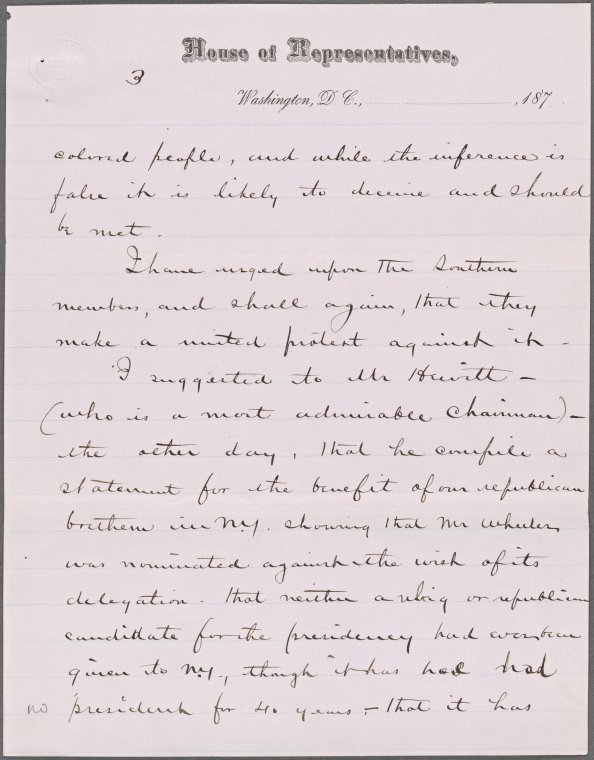 House of Representatives,
3
Washington, D C., ........................., 187 .
colored people, and while the inference is
false it is likely to deceive and should
be met.
I have urged upon the Southern
members, and shall again, that they
make a united protest against it -
I suggested to Mr Hewitt -
(who is a most admirable chairman) -
the other day, that he compile a
statement for the benefit of our republican
brethern in N.Y. showing that Mr Wheeler
was nominated against the wish of its
delegation. That neither a whig or republican
candidate for the presidency had ever been
given to N.Y., though it has had had
no president for 40 years, - that it has